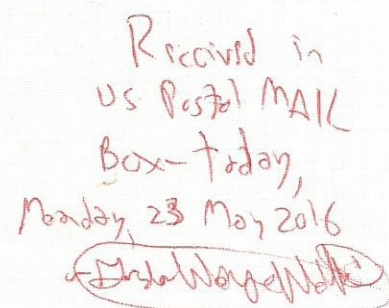 Received in
US Postal MAIL
Box - Today,
Monday, 23 May 2016
Wayne